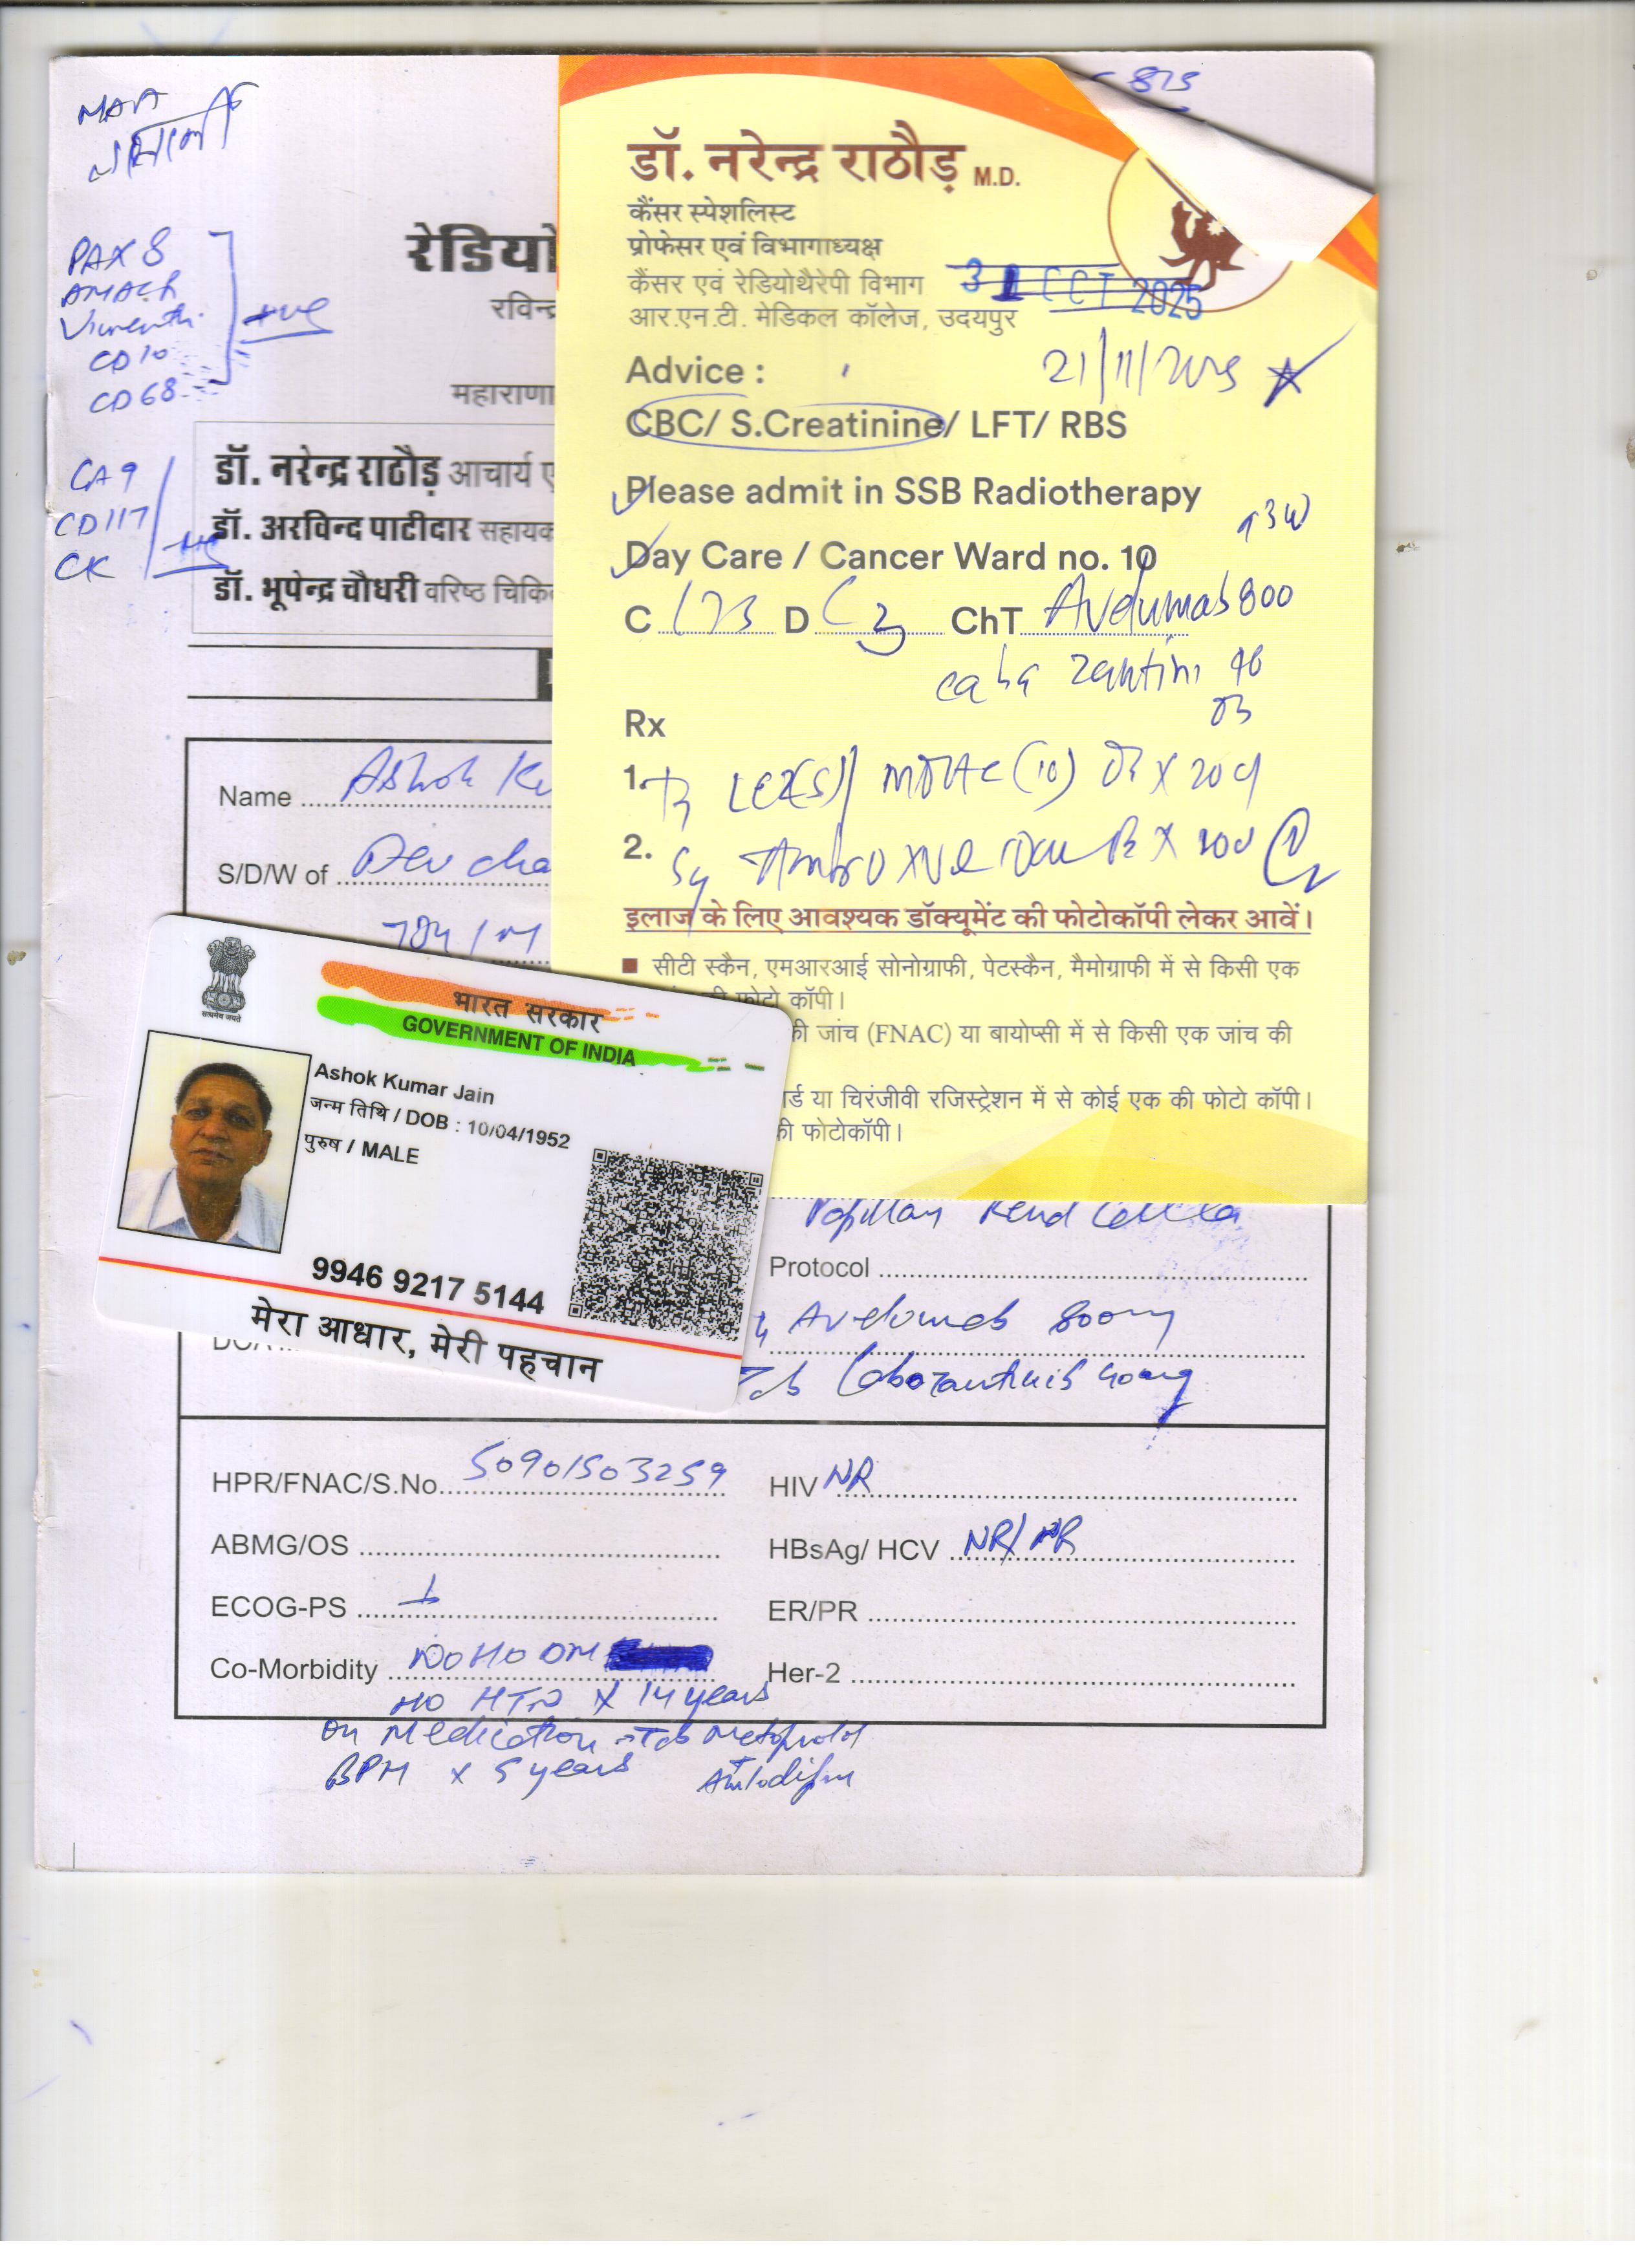 MAA
PAX 8
AMACR
Vimentin
CD10
CD68
+ve
CA9
CD117
CK
-ve
रेडियो
रविन्द्र
महाराणा
डॉ. नरेन्द्र राठौड़ आचार्य ए
डॉ. अरविन्द पाटीदार सहायक
डॉ. भूपेन्द्र चौधरी वरिष्ठ चिकि
815
डॉ. नरेन्द्र राठौड़ M.D.
कैंसर स्पेशलिस्ट
प्रोफेसर एवं विभागाध्यक्ष
कैंसर एवं रेडियोथैरेपी विभाग
आर.एन.टी. मेडिकल कॉलेज, उदयपुर
31 OCT 2025
21/11/2025
Advice :
CBC/ S.Creatinine/ LFT/ RBS
Please admit in SSB Radiotherapy
Day Care / Cancer Ward no. 10
q3W
C D C3 ChT Avelumab 800
caba zantini 40
Rx
1.
2. Sy
इलाज के लिए आवश्यक डॉक्यूमेंट की फोटोकॉपी लेकर आवें।
सीटी स्कैन, एमआरआई सोनोग्राफी, पेटस्कैन, मैमोग्राफी में से किसी एक
की फोटो कॉपी।
की जांच (FNAC) या बायोप्सी में से किसी एक जांच की
र्ड या चिरंजीवी रजिस्ट्रेशन में से कोई एक की फोटो कॉपी।
की फोटोकॉपी।
Name Ashok Ku
S/D/W of Dev cha
70y / M
सत्यमेव जयते
भारत सरकार
GOVERNMENT OF INDIA
Ashok Kumar Jain
जन्म तिथि / DOB : 10/04/1952
पुरुष / MALE
9946 9217 5144
मेरा आधार, मेरी पहचान
Papillary Renal cell ca
Protocol
Avelumab 800mg
Tab Cabozantinib 40mg
HPR/FNAC/S.No. 50901503259
HIV NR
ABMG/OS
HBsAg/ HCV NR/ NR
ECOG-PS 1
ER/PR
Co-Morbidity No H/O DM
Her-2
H/O HTN x 14 years
on Medication - Tab Metoprolol
+ Amlodipin
BPH x 5 years